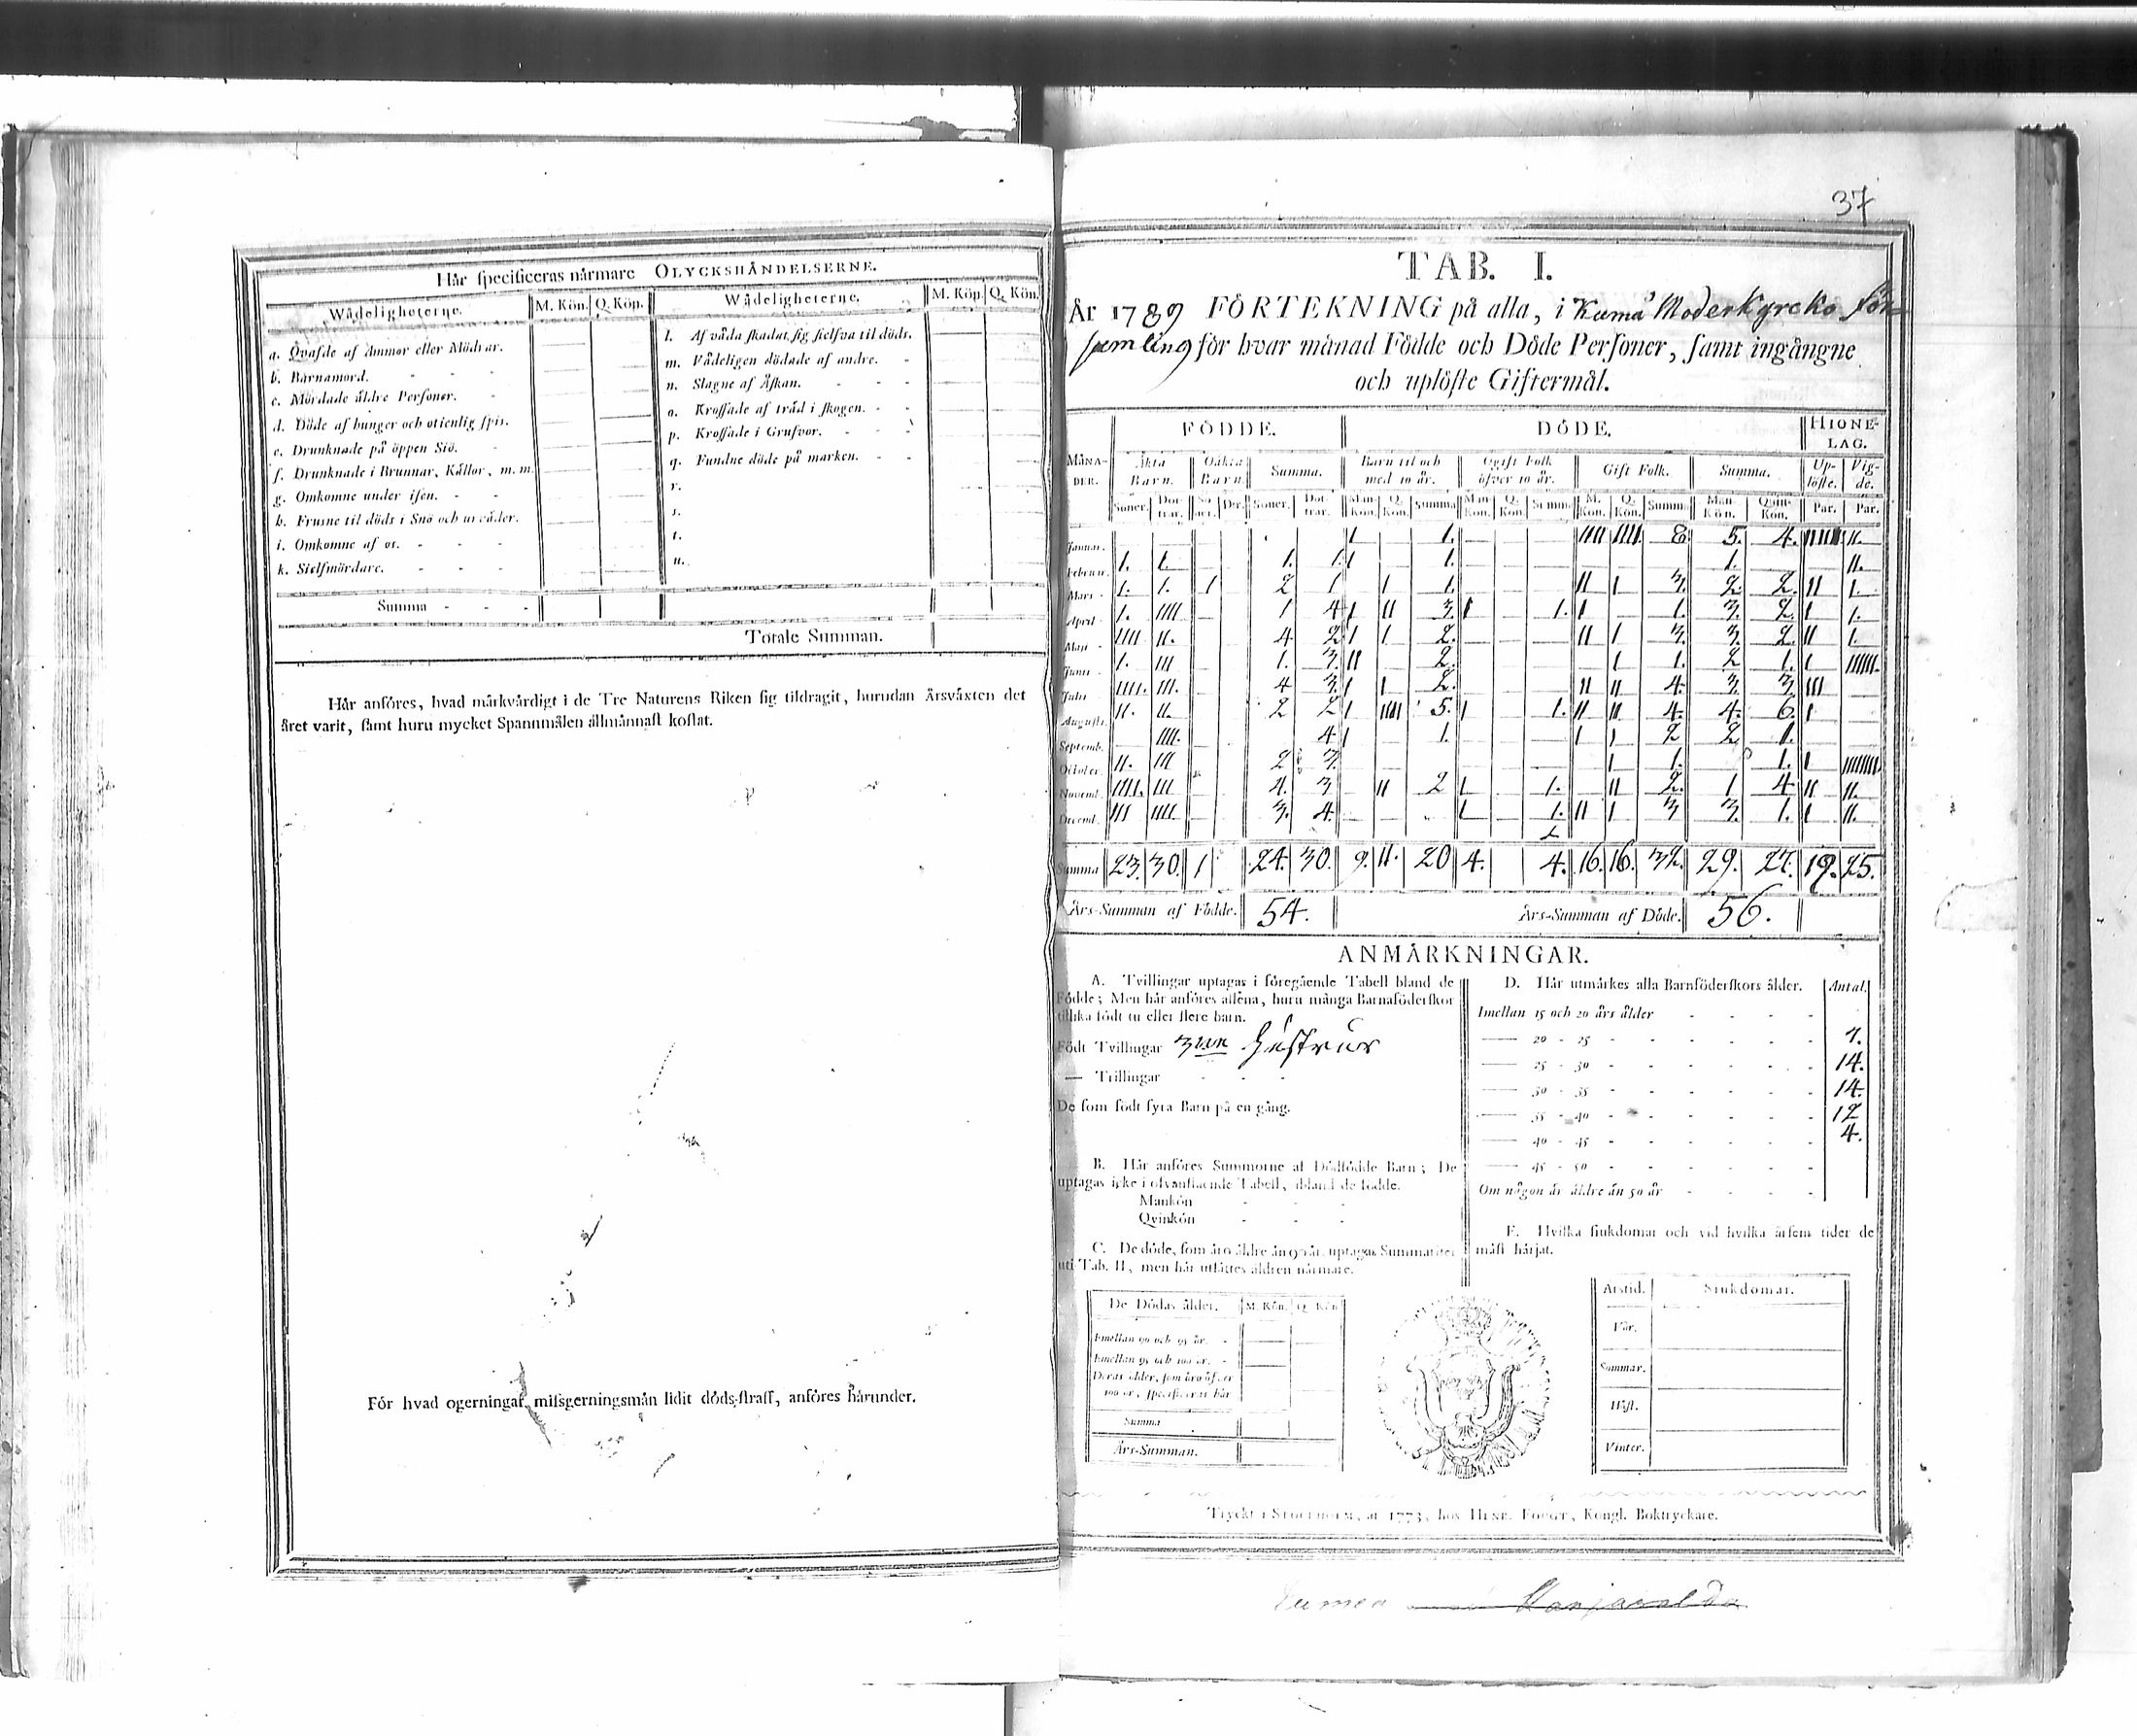 Hår specificeras nårmare OLYCKSHÅNDELSERNE.
Wådeligheterne. M. Kön. Q. Kön. Wådeligheterne. M. Kön. Q. Kön.
a. Qvafde af Ammor eller Mödrar.
b. Barnamord.
c. Mördade åldre Personer.
d. Döde af hunger och otienlig spis.
e. Drunknade på öppen Siö.
f. Drunknade i Brunnar, Kållor, m. m.
g. Omkomne under isen.
h. Frusne til döds i Snö och urvåder.
i. Omkomne af os.
k. Sielfmördare.
l. Af våda skadat sig sielfva til döds.
m. Vådeligen dödade af andre.
n. Slagne af Åskan.
o. Krossade af tråd i skogen.
p. Krossade i Grufvor.
q. Fundne döde på marken.
r.
s.
t.
u.
Summa
Totale Summan.
Hår anföres, hvad mårkvårdigt i de Tre Naturens Riken sig tildragit, hurudan Årsvåxten det
året varit, samt huru mycket Spannmålen allmånnast kostat.
För hvad ogerningar missgerningsmån lidit döds-straff, anföres hårunder.
37
TAB. I.
År 1789 FÖRTEKNING på alla, i Kumå Moderkyrcko För-
samling för hvar månad Födde och Döde Personer, samt ingångne
och uplöste Giftermål.
FÖDDE. DÖDE. HIONE-
LAG.
MÅNA-
DER. Åkta
Barn. Oåkta
Barn. Summa. Barn til och
med 10 år. Ogift Folk
öfver 10 år. Gift Folk. Summa. Up-
löste. Vig-
de.
Söner. Döt-
trar. Sö-
ner. Dtr. Söner. Döt-
trar. Man
Kön. Q.
Kön. Summa Man
Kön. Q.
Kön. Summ. M.
Kön. Q.
Kön. Summ. Man
Kön. Qvin-
Kön. Par. Par.
Januar. 1 1. IIII IIII. 8. 5. 4. II.
Februar. 1. 1. 1. 1. 1 1. 1. II.
Mars 1. 1. 1 2 1 1 1. II 1 3. 2. 2. II 1.
April 1. IIII 1 4 1 II 3. 1 1. 1 1. 3. 2. 1 1.
Maji IIII II. 4 2 1 1 2. II 1 3. 3. 2. II 1.
Junii 1. III 1. 3. II 2. 1 1. 2 1. 1 IIIIII.
Julii IIII. III. 4 3. 1 1 2. II II 4. 3. 3. III
Augusti. II. II. 2 2 1 IIII 5. 1 1. II II 4. 4. 6. 1
Septemb. IIII. 4 1 1. 1 1 2 2. 1.
Octobr. II. III 2 3. 1 1. 1. 1 IIIIIII.
Novemb. IIII. III 4. 3 II 2 1 1. II 2. 1 4 II II.
Decemb. III IIII. 3. 4. 1 1. II 1 3 3. 1. 1 II.
Summa 23. 30. 1 24. 30. 9. 11. 20 4. 4. 16. 16. 32. 29. 27. 19. 25.
Års-Summan af Födde. 54. Års-Summan af Döde. 56.
ANMÅRKNINGAR.
A. Tvillingar uptagas i föregående Tabell bland de
Födde; Men hår anföres allena, huru många Barnaföderskor
tillika födt tu eller flere barn.
Födt Tvillingar 3ne Hustrur
— Trillingar
De som födt fyra Barn på en gång.
B. Hår anföres Summorne af Dödfödde Barn; De
uptagas icke i ofvanstaende Tabell, ibland de födde.
Mankön
Qvinkön
C. De döde, som åro åldre ån 90 år, uptagas Summariter
uti Tab. II, men hår utsåttes åldren nårmare.
De Dödas ålder. M. Kön. Q. Kön
Imellan 90 och 95 år.
Imellan 95 och 100 år.
Deras ålder, som åro öfver
100 år, specificeras hår
Summa
Års-Summan.
D. Hår utmårkes alla Barnföderskors ålder. Antal.
Imellan 15 och 20 års ålder
— 20 - 25 7.
— 25 - 30 14.
— 30 - 35 14.
— 35 - 40 12
— 40 - 45 4.
— 45 - 50
Om någon år åldre ån 50 år
E. Hvilka siukdomar och vid hvilka årsens tider de
måst hårjat.
Årstid. Siukdomar.
Vår.
Sommar.
Höst.
Vinter.
Tryckt i STOCKHOLM, år 1773, hos HENR. FOUGT, Kongl. Boktryckare.